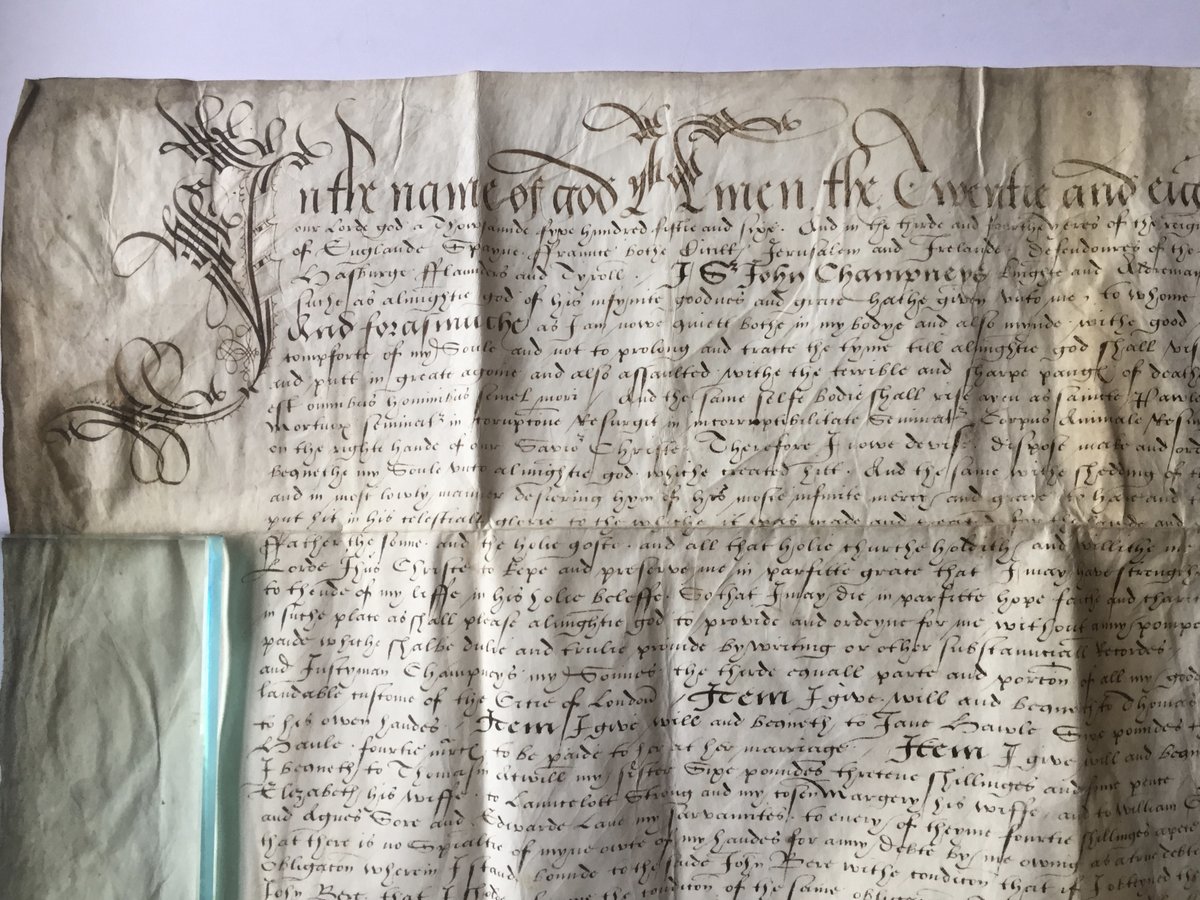 In the name of god Amen the Twentie and eig
our Lorde god a Thowsande fyve hundred fiftie and sixe. And in the thirde and fourthe yeres of the reign
of Englande Spayne ffraunce bothe Cicill Jerusalem and Irelande Defendoures of the
Hasburge fflaunders and Tyroll. I Sr John Champneys knighte and Alderman
suche as almightie god of his infynite goodnes and grace hathe given unto me, to whome
And forasmuche as I am nowe quiett bothe in my bodye and also mynde withe good
comforte of my Soule and not to prolong and tracte the tyme till almightie god shall vis
and putt in greate agonie and also assaulted withe the terrible and sharpe panges of deathe
est omnibus hominibus semel mori. And the same selfe bodie shall rise aven as saincte Pawle
Mortuis seminatr in corruptione Resurgit in incorruptibilitate Seminatr Corpus Animale Resur
on the righte hande of our Savior Christe. Therefore I nowe devise, dispose make and ord
bequethe my Soule unto almightie god whiche created hitt. And the same withe shedding of
and in most lowly manner desiering hym of his moste infinite mercy and grace to have and
put hit in his celestiall glorie to the whiche it was made and created
ffather the sonne and the holie goste. and all that holie churche holdith and willithe me
Lorde Jhus Christe to kepe and preserve me in parfitte grace that I may have strength
to thende of my liffe in his holie beleffe. So that I may die in parfitte hope faith and charit
in suche place as shall please almightie god to provide and ordeyne for me without anny pompe
paide whiche shalbe dulie and trulie provide by writing or other substanciall Recordes
and Justynian Champneys my Sonnes the thirde equall parte and porcon of all my good
laudable custome of the Citie of London. Item I give will and bequeth to Thomas
to his owen handes. Item I give will and bequeth to Jane Hawle Sixe poundes
Haule fourtie to be paide to her at her marriage. Item I give will and bequ
I bequeth to Thomasin Atwill my sister Sixe poundes thretene shillinges and pence
Elizabeth his wiffe, to Launcelott Strong and my cosen Margery his wiffe, and to William
and Agnes Gore and Edwarde Lane my Sarvauntes to every of theyme fourtie shillinges apece
that there is no Specialtie of myne owte of my handes for anny debte by me owing as a true debte
Obligacon wherein I stand bounde to the saide John Bere withe condicon that if I
John Bere that I the condicon of the same